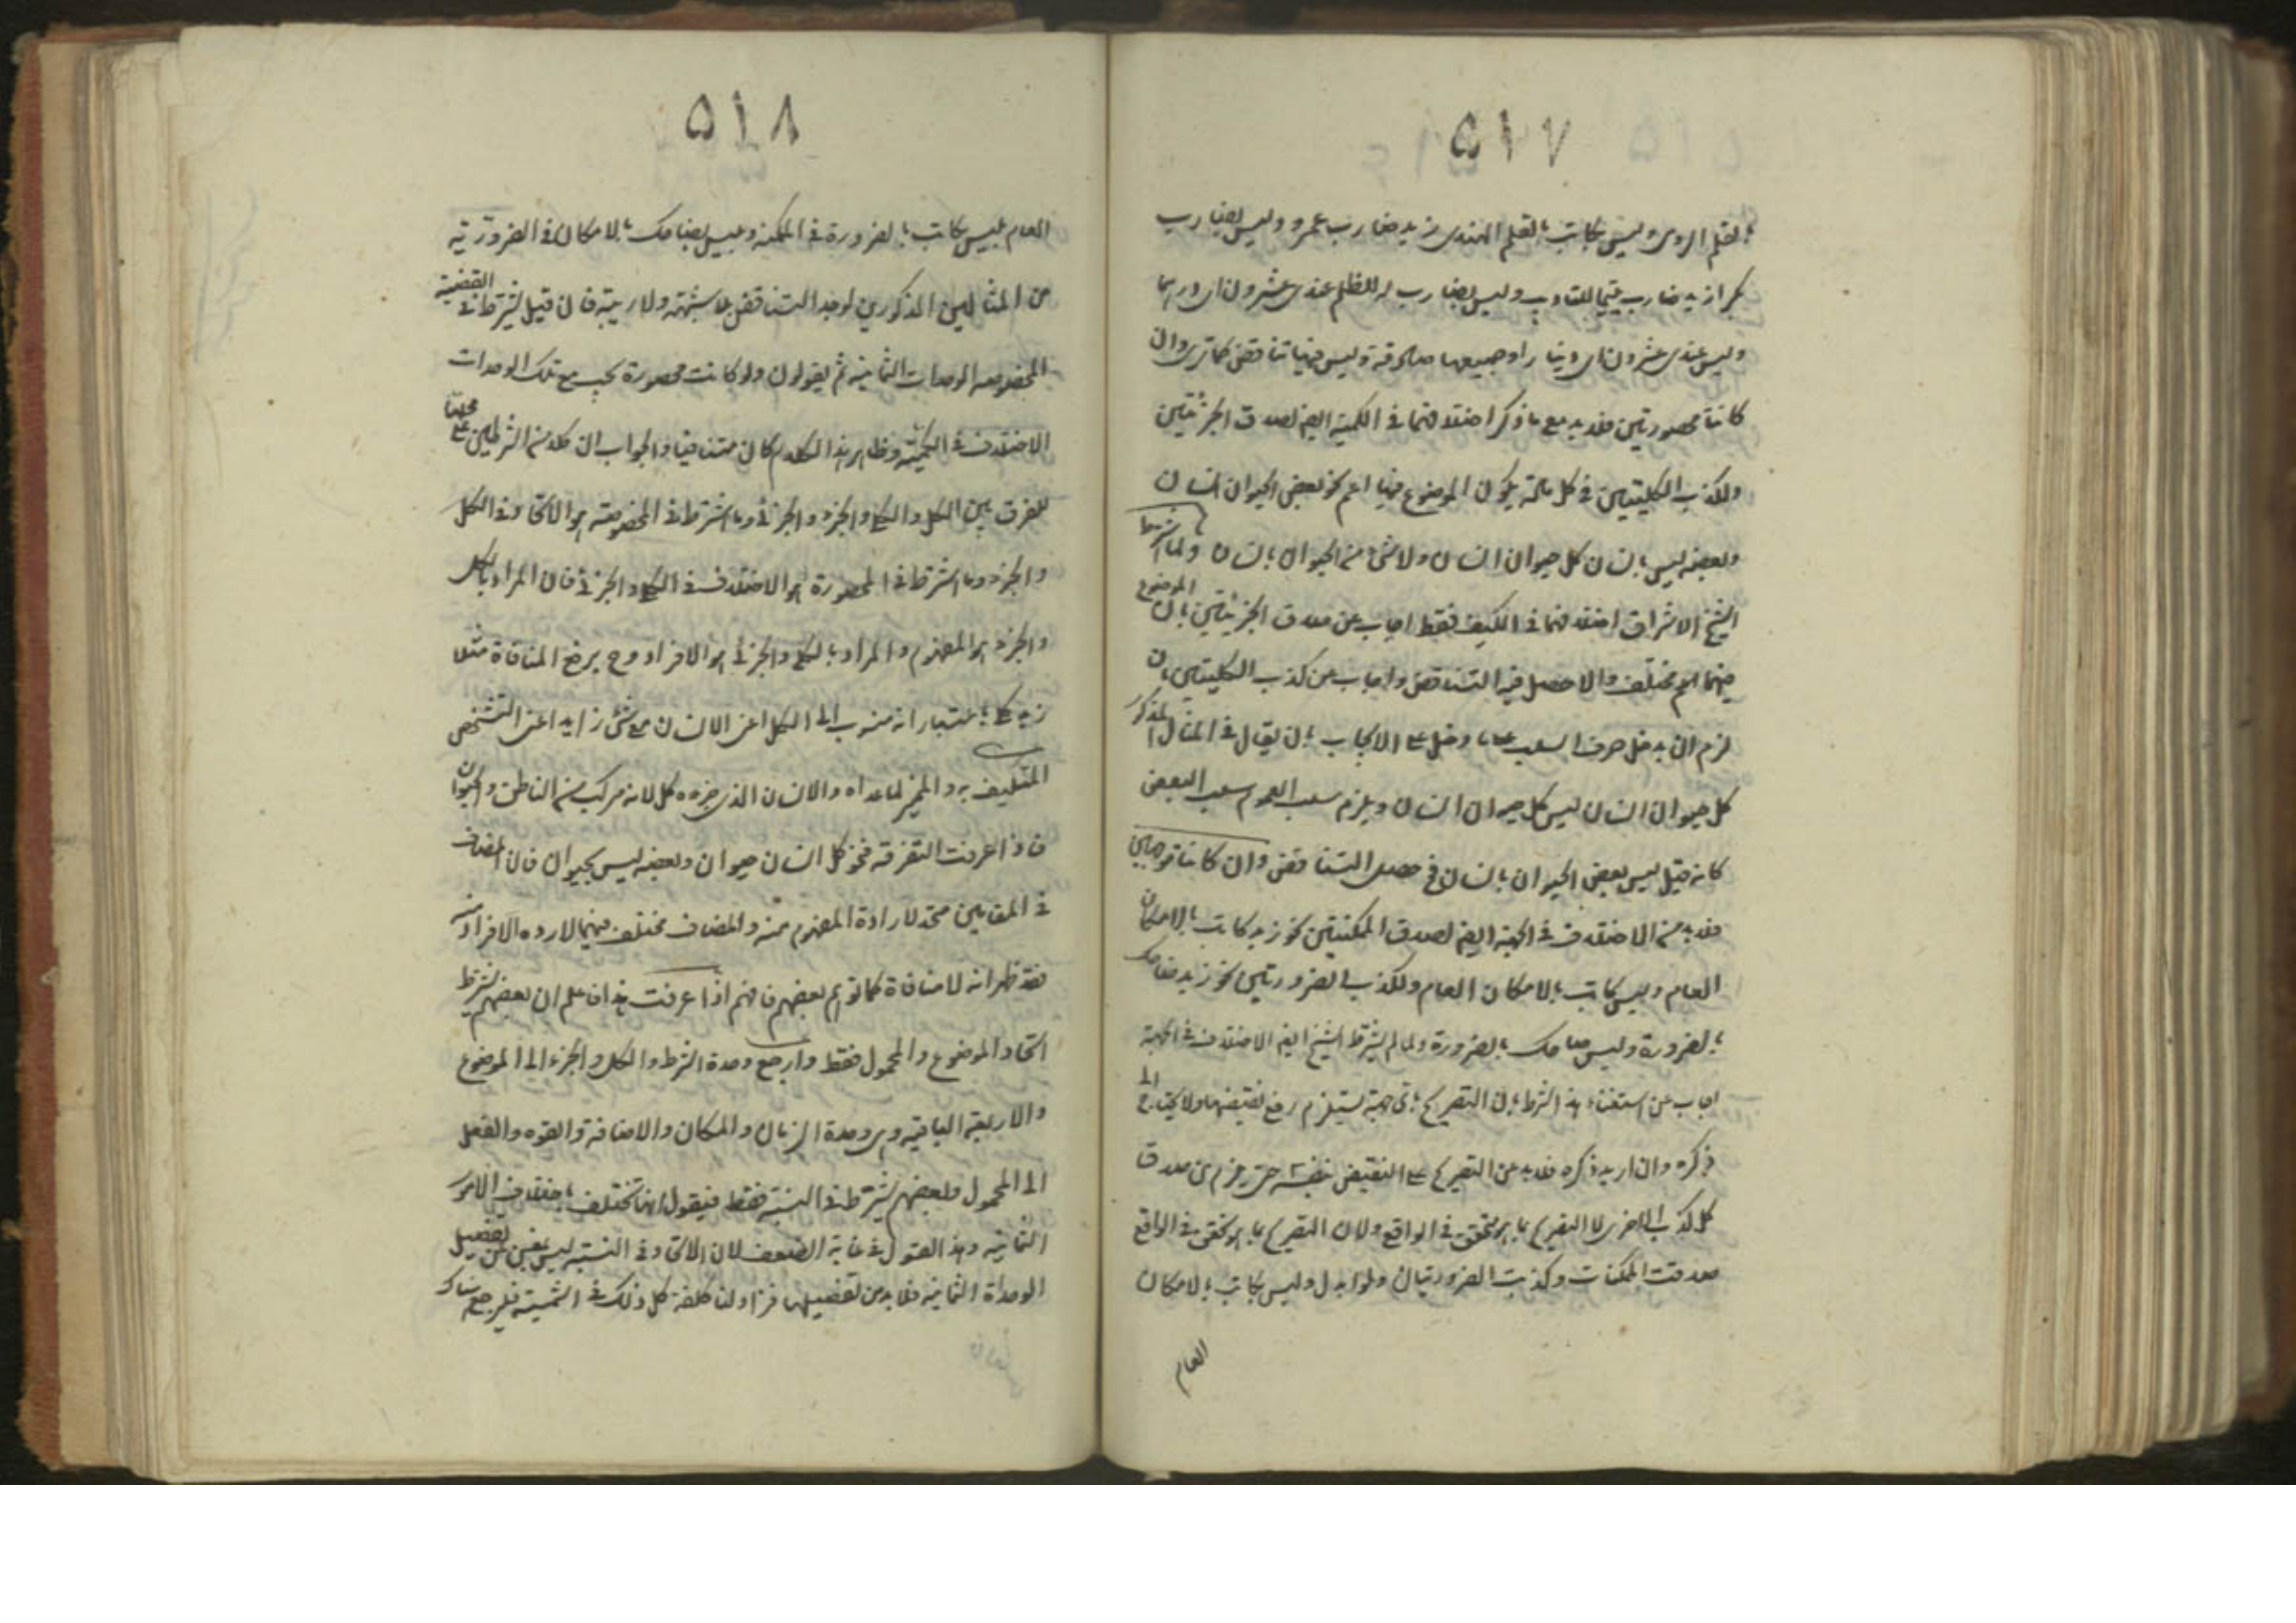 ٥١٧
بالقلم الرومى وليس بكاتب بالقلم الهندى زيد ضارب عمرو وليس بضارب
بكرا زيد ضارب يتيما للتاديب وليس بضارب له للظلم عندى عشرون اى درهما
وليس عندى عشرون اى دينارا وجميعها صادقة وليس فيها تناقض كما ترى وان
كانتا محصورتين فلابد مع ما ذكر اختلافهما فى الكمية ايضا لصدق الجزئيتين
ولكذب الكليتين فى كل مادة يكون الموضوع فيها اعم نحو بعض الحيوان انسان
وبعضه ليس بانسان كل حيوان انسان ولا شئ من الحيوان بانسان ولما اشترط
الشيخ الاشراق اختلافهما فى الكيف فقط اجاب عن صدق الجزئيتين بان الموضوع
فيهما امر مختلف والا حصل فيه التناقض واجاب عن كذب الكليتين بان
لزم ان يدخل حرف السلب على ما دخل على الايجاب بان يقال فى المثال المذكور
كل حيوان انسان ليس كل حيوان انسان ويلزم سلب العموم سلب البعض
كانه قيل ليس بعض الحيوان بانسان فح حصل التناقض وان كانتا موجهتين
فلابد من الاختلاف فى الجهة ايضا لصدق الممكنتين نحو زيد كاتب بالامكان
العام وليس كاتب بالامكان العام ولكذب الضرورتين نحو زيد ضاحك
بالضرورة وليس ضاحك بالضرورة ولما لم يشترط الشيخ ايضا الاختلاف فى الجهة
اجاب عن استغناء هذا الشرط بان التصريح باى جهة يستلزم رفع نقيضها ولا يحتاج الى
ذكره وان اريد ذكره فلابد من التصريح على النقيض بنفسه حتى يلزم من صدق
كل كذب الاخرى لا التصريح بما هو متحقق فى الواقع ولان التصريح بما هو تحقق فى الواقع
صدقت الممكنات وكذبت الضرورتيان ولو ابدل وليس بكاتب بالامكان
العام
٥١٨
العام بليس كاتب بالضرورة فى الممكنة وبليس بضاحك بالامكان فى الضرورية
من المثالين المذكورين لوجد التناقض بلا شبهة ولا ريبة فان قيل يشترط فى القضية
المخصوصة الوحدات الثمانية ثم يقولون ولو كانت محصورة يجب مع تلك الوحدات
الاختلاف فى الكمية وظاهر هذا الكلام كان متنافيا والجواب ان كلا من الشرطين على محلها
للفرق بين الكل والكلى والجزء والجزئى وما اشترط فى المخصوصة هو الاتحاد فى الكل
والجزء وما اشترط فى المحصورة هو الاختلاف فى الكلى والجزئى فان المراد بالكل
والجزء هو المفهوم والمراد بالكلى والجزئى هو الافراد وح يرفع المنافاة مثلا
زيد كلى باعتبار انه منسوب الى الكل اعنى الانسان مع شئ زايد اعنى التشخص
المتكيف به والمميز لما عداه والانسان الذى جزءه كل لانه مركب من الناطق والحيوان
فاذا عرفت التفرقة فنحو كل انسان حيوان وبعضه ليس بحيوان فان المضاف
فى المقابلين متحد لارادة المفهوم منه والمضاف مختلف فيهما لارده الافراد منه
فقد ظهر انه لا منافاة كما توهم بعضهم فافهم اذا عرفت هذا فاعلم ان بعضهم يشترط
اتحاد الموضوع والمحمول فقط وارجع وحدة الشرط والكل والجزء الى الموضوع
والاربعة الباقية وهى وحدة الزمان والمكان والاضافة والقوه والفعل
الى المحمول وبعضهم يشترط فى النسبة فقط فيقول انها تختلف باختلاف الامور
الثمانية وهذا القول فى غاية الضعف لان الاتحاد فى النسبة ليس يغنى عن تفصيل
الوحداة الثمانية فلابد من تفصيلها كل ذلك فى الشمسية فليرجع